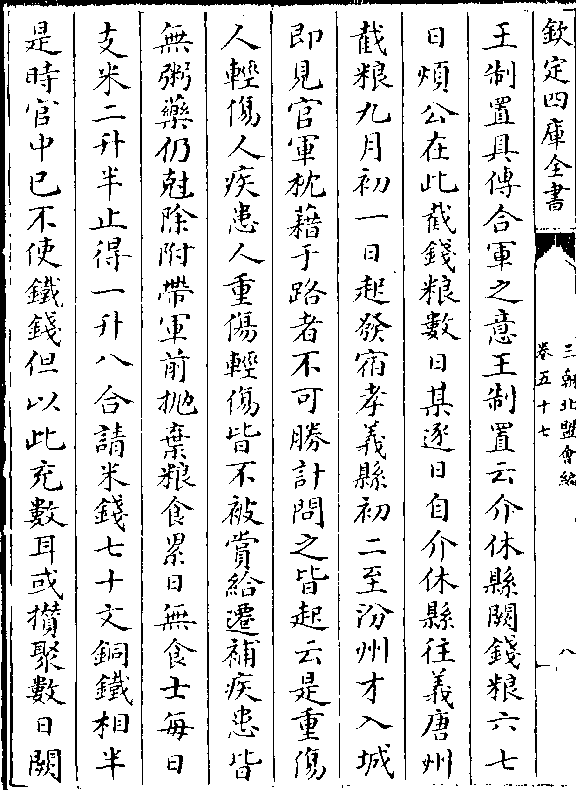 欽定四庫全書
三朝北盟會編
卷五十七
八
王制置具傳合軍之意王制置云介休縣闕錢粮六七
日煩公在此截錢粮數日某逐日自介休縣往義唐州
截粮九月初一日起發宿孝義縣初二至汾州才入城
即見官軍枕藉于路者不可勝計問之皆起云是重傷
人輕傷人疾患人重傷輕傷皆不被賞給遷補疾患皆
無粥藥仍尅除附帶軍前抛棄粮食累日無食士每日
支米二升半止得一升八合請米錢七十文銅鐵相半
是時官中已不使鐵錢但以此充數耳或攅聚數日闕